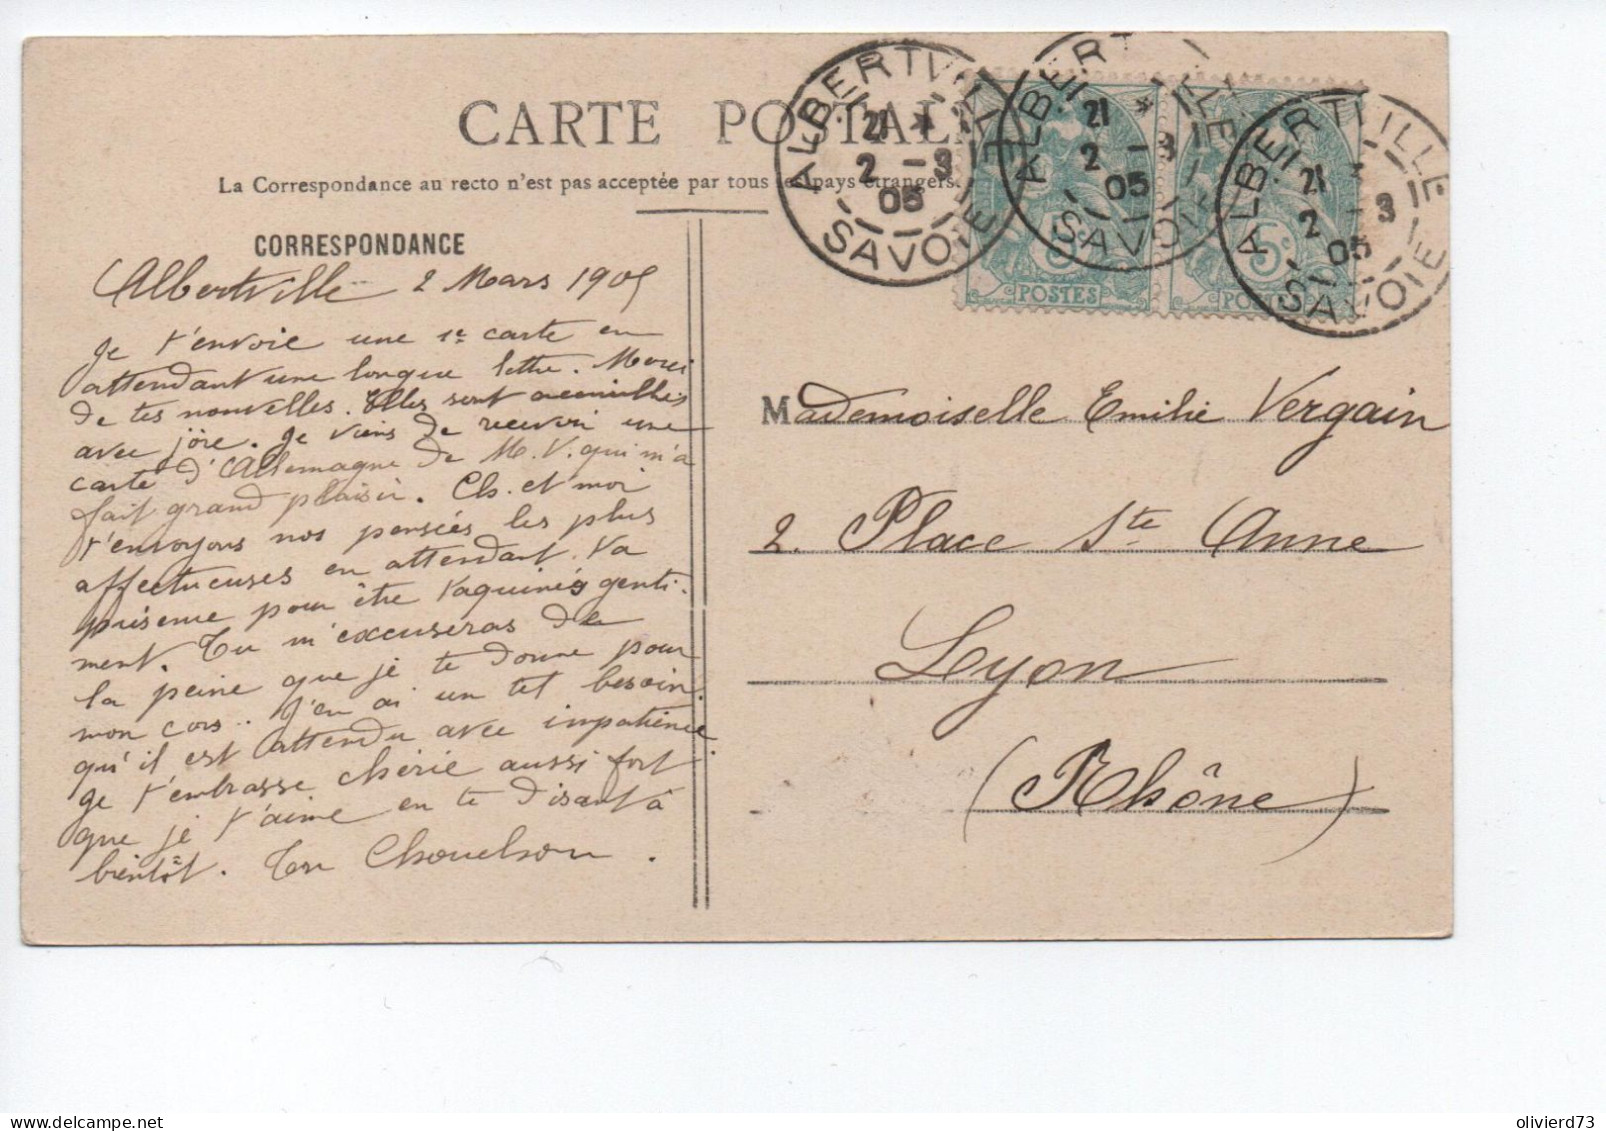 CARTE POSTALE
La Correspondance au recto n'est pas acceptée par tous les pays étrangers.
CORRESPONDANCE
Albertville 2 Mars 1905
Je t'envoie une 1e carte en
attendant une longue lettre. Merci
de tes nouvelles. Elles sont accueillies
avec joie. Je viens de recevoir une
carte d'Allemagne de M. V. qui m'a
fait grand plaisir. Ch. et moi
t'envoyons nos pensées les plus
affectueuses en attendant. Va
pour être taquinés genti-
ment. Tu m'excuseras de
la peine que je te donne pour
mon cors.. J'en ai un tel besoin
qu'il est attendu avec impatience
Je t'embrasse chérie aussi fort
que je t'aime en te disant à
bientôt. Ton Chouchou.
ALBERTVILLE
21 *
2 - 3
05
SAVOIE
ALBERTVILLE
21 *
2 - 3
05
SAVOIE
ALBERTVILLE
21 *
2 - 3
05
SAVOIE
5c
POSTES
5c
POSTES
Mademoiselle Emilie Vergain
2. Place Ste Anne
Lyon
(Rhône)
olivierd73